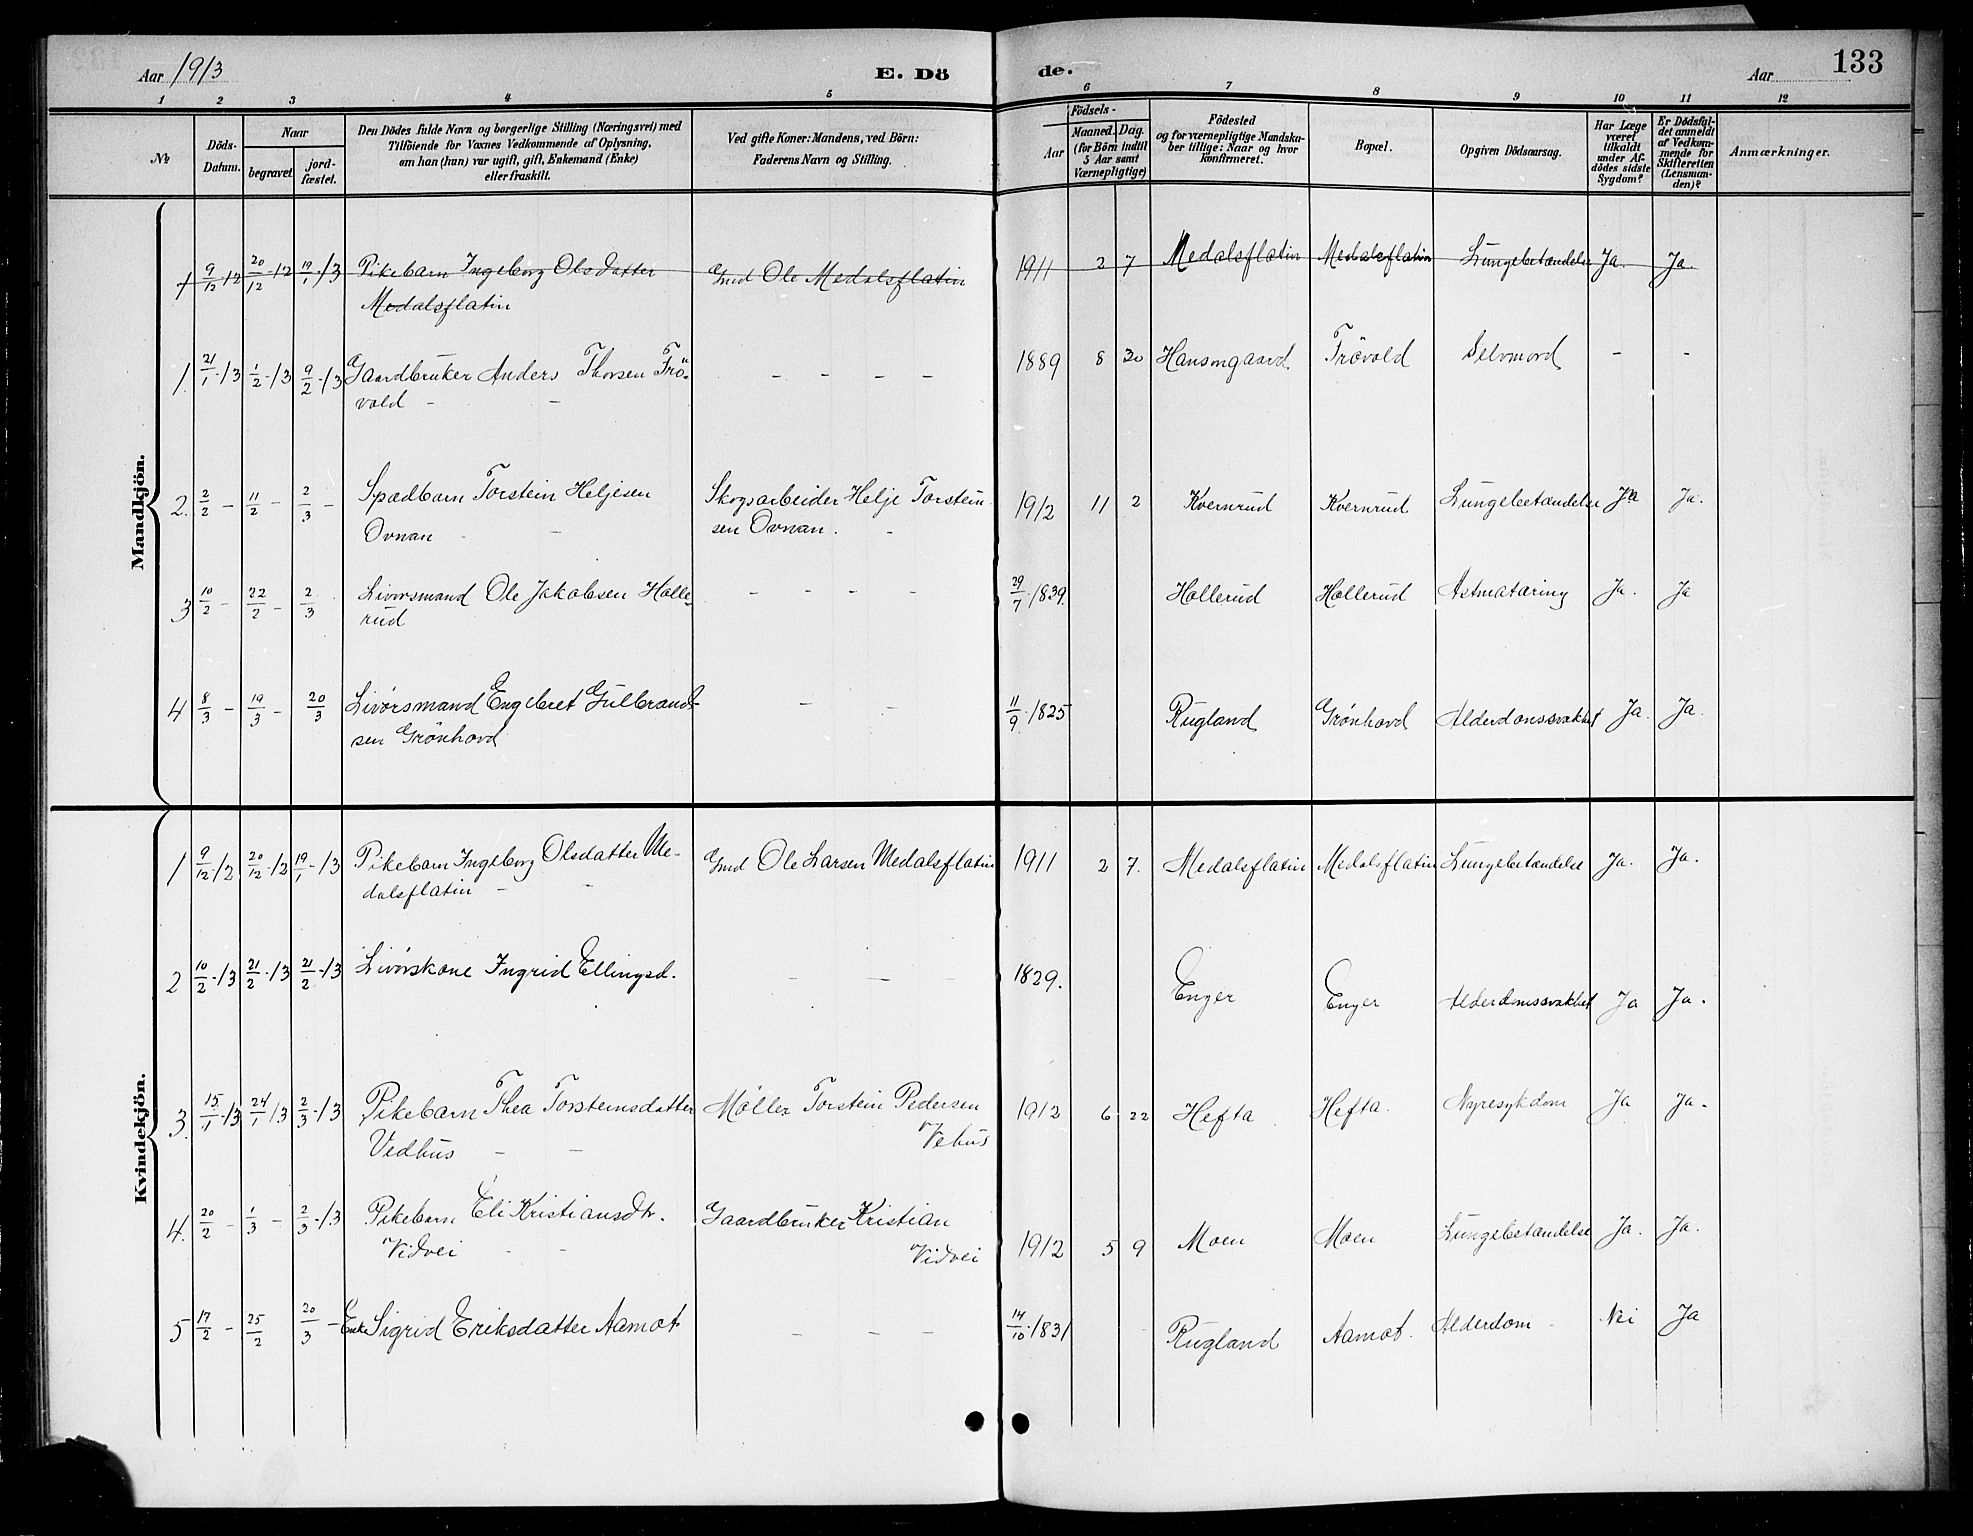 Aar 1913
E. Dö
de.
Aar
133
1 2 3 4 5 6 7 8 9 10 11 12
№
Döds-
Datum.
Naar
begravet
jord-
fæstet.
Den Dödes fulde Navn og borgerlige Stilling (Næringsvei) med
Tilföiende for Voxnes Vedkommende af Oplysning,
om han (hun) var ugift, gift, Enkemand (Enke)
eller fraskilt.
Ved gifte Koner: Mandens, ved Börn:
Faderens Navn og Stilling.
Födsels-
Aar
Maaned. Dag.
(for Börn indtil
5 Aar samt
Værnepligtige)
Födested
og for værnepligtige Mandska-
ber tillige: Naar og hvor
konfirmeret.
Bopæl.
Opgiven Dödsaarsag.
Har Læge
været
tilkaldt
under Af-
dödes sidste
Sygdom?
Er Dödsfal-
det anmeldt
af Vedkom-
mende for
Skifteretten
(Lensman-
den)?
Anmærkninger.
Mandkjön.
1 9/12-12 20/12-12 19/1-13 Pikebarn Ingeborg Olsdatter Gmd Ole Medalsflatin 1911 2 7 Medalsflatin Medalsflatin Lungebetændelse Ja. Ja.
Medalsflatin
1. 21/1-13 1/2-13 9/2-13 Gaardbruker Anders Thorsen Trö- - - - - 1889 8 30 Hansongaard Trövold Selvmord - -
vold - -
2. 2/2 - 11/2 - 2/3 - Spædbarn Torstein Heljesen Skogsarbeider Helje Torstein- 1912 11 2 Kvernrud Kvernrud Lungebetændelse Ja Ja.
Ovnan - - sen Ovnan. -
3 10/2 - 22/2 - 2/3 Livörsmand Ole Jakobsen Holle- - - - - 29/7-1839. Hollerud Hollerud Astmatæring Ja. Ja
rud
4 8/3 - 19/3 - 20/3 Livörsmand Engebret Gulbrand- - - 11/9-1825 Rugland Grönhovd Alderdomssvakhet Ja. Ja.
sen Grönhovd
Kvindekjön.
1 9/12-12 20/12-12 19/1-13 Pikebarn Ingeborg Olsdatter Me- Gmd Ole Larsen Medalsflatin 1911 2 7. Medalsflatin Medalsflatin Lungebetændelse Ja. Ja.
dalsflatin - -
2 10/2-13 21/2-13 21/2-13 Livörskone Ingrid Ellingsd. - - - 1829. Enger Enger Alderdomssvakhet Ja Ja.
3. 15/1-13 24/1 13 2/3-13 Pikebarn Thea Torsteinsdatter Möller Torstein Pedersen 1912 6 22 Hefta Hefta. Nyresykdom Ja Ja.
Vedhus - - Vehus
4. 20/2 - 1/3 - 2/3-13 Pikebarn Eli Kristiansdtr. Gaardbruker Kristian 1912 5 9 Moen Moen Lungebetændelse Ja. Ja.
Vidvei - - Vidvei
5 17/2 - 25/2 20/3 - Enke Sigrid Eriksdatter Aamot - - - 14/10-1831 Rugland Aamot. Alderdom - Nei Ja